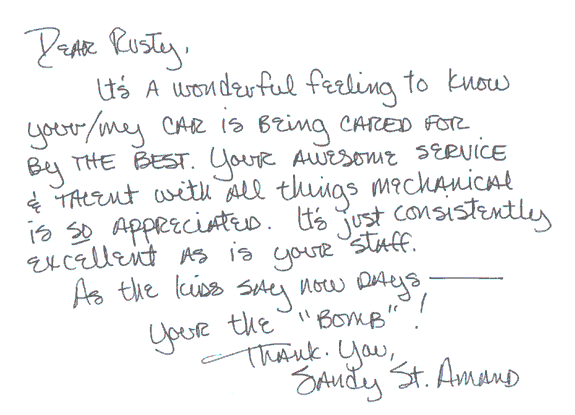 Dear Rusty,
It's a wonderful feeling to know
your/my car is being cared for
by the best. Your awesome service
& talent with all things mechanical
is so appreciated. It's just consistently
excellent as is your staff.
As the kids say now days ———
your the "Bomb"!
Thank. You,
Sandy St. Amand